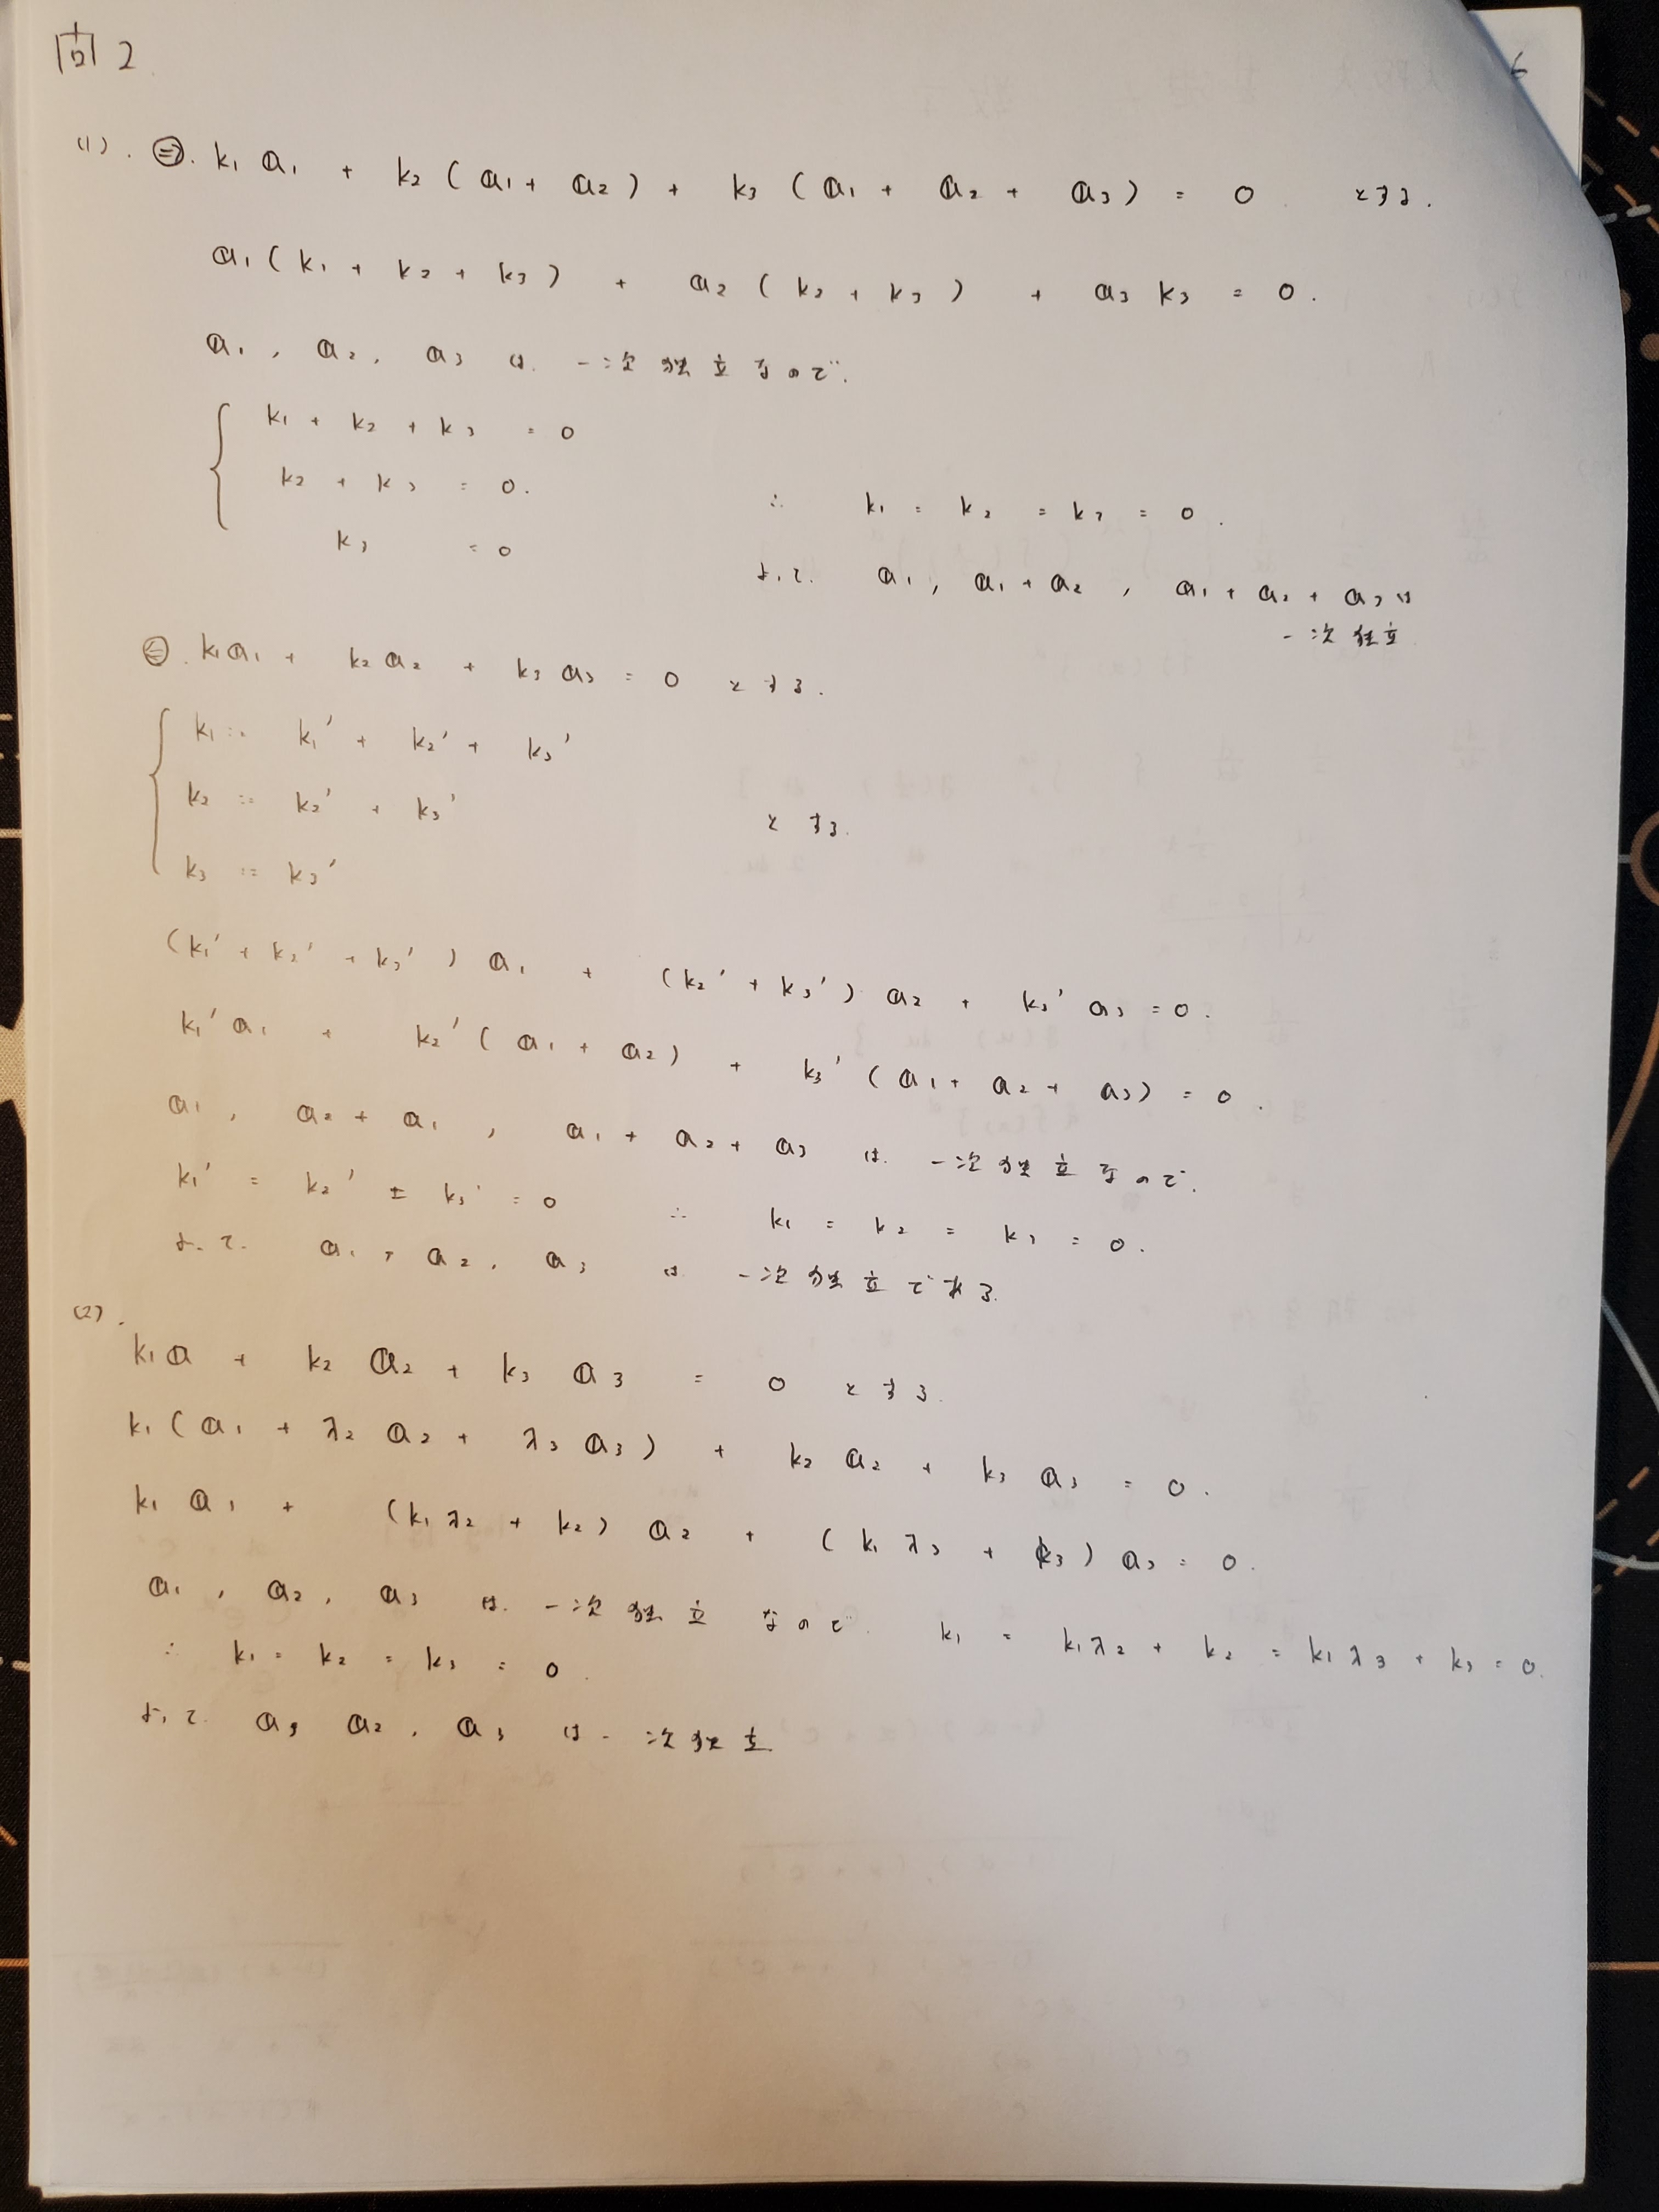 問 2
(1). ⇒. k₁ a₁ + k₂ ( a₁ + a₂ ) + k₃ ( a₁ + a₂ + a₃ ) = 0 とする.
a₁ ( k₁ + k₂ + k₃ ) + a₂ ( k₂ + k₃ ) + a₃ k₃ = 0 .
a₁ , a₂ , a₃ は. 一次独立なので.
k₁ + k₂ + k₃ = 0
k₂ + k₃ = 0.
k₃ = 0
∴ k₁ = k₂ = k₃ = 0 .
よって. a₁ , a₁ + a₂ , a₁ + a₂ + a₃ は
一次独立
⇐. k₁a₁ + k₂ a₂ + k₃ a₃ = 0 とする.
k₁ := k₁′ + k₂′ + k₃′
k₂ := k₂′ + k₃′
とする.
k₃ := k₃′
(k₁′ + k₂′ + k₃′ ) a₁ + (k₂′ + k₃′) a₂ + k₃′ a₃ = 0 .
k₁′ a₁ + k₂′ ( a₁ + a₂ ) + k₃′ ( a₁ + a₂ + a₃) = 0 .
a₁ , a₂ + a₁ , a₁ + a₂ + a₃ は. 一次独立なので.
k₁′ = k₂′ = k₃′ = 0 ∴ k₁ = k₂ = k₃ = 0 .
よって. a₁ , a₂ , a₃ は 一次独立である.
(2).
k₁a + k₂ a₂ + k₃ a₃ = 0 とする.
k₁ ( a₁ + λ₂ a₂ + λ₃ a₃ ) + k₂ a₂ + k₃ a₃ = 0 .
k₁ a₁ + (k₁ λ₂ + k₂) a₂ + ( k₁ λ₃ + k₃ ) a₃ = 0 .
a₁ , a₂ , a₃ は. 一次独立なので k₁ = k₁λ₂ + k₂ = k₁λ₃ + k₃ = 0.
∴ k₁ = k₂ = k₃ = 0 .
よって. a, a₂ , a₃ は 一次独立